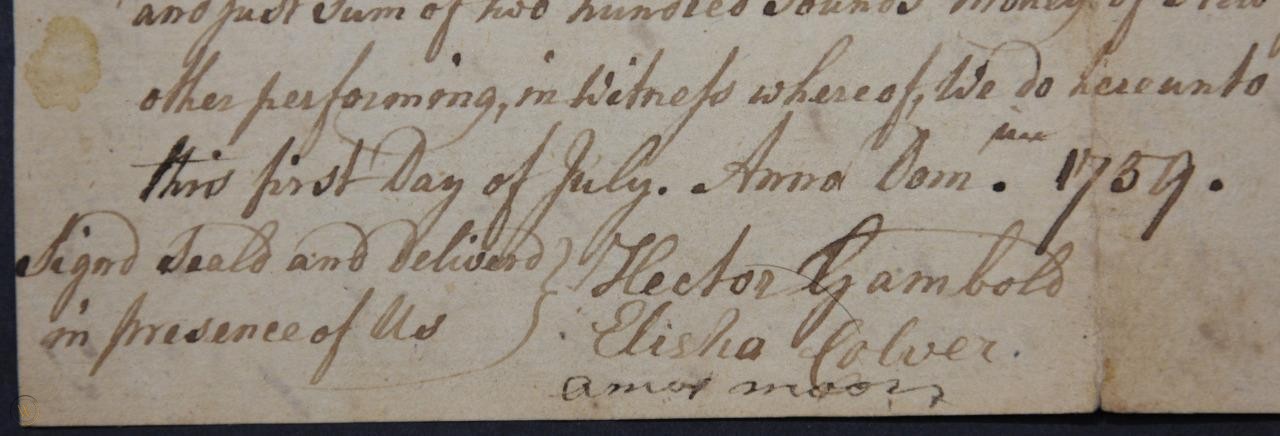 and just Sum of two hundred Pounds Money of New
other performing, in Witness whereof, We do hereunto
this first Day of July. Anno Dom. 1759.
Signd Seald and Deliverd } Hector Gambold
in presence of Us Elisha Colver.
amos moors